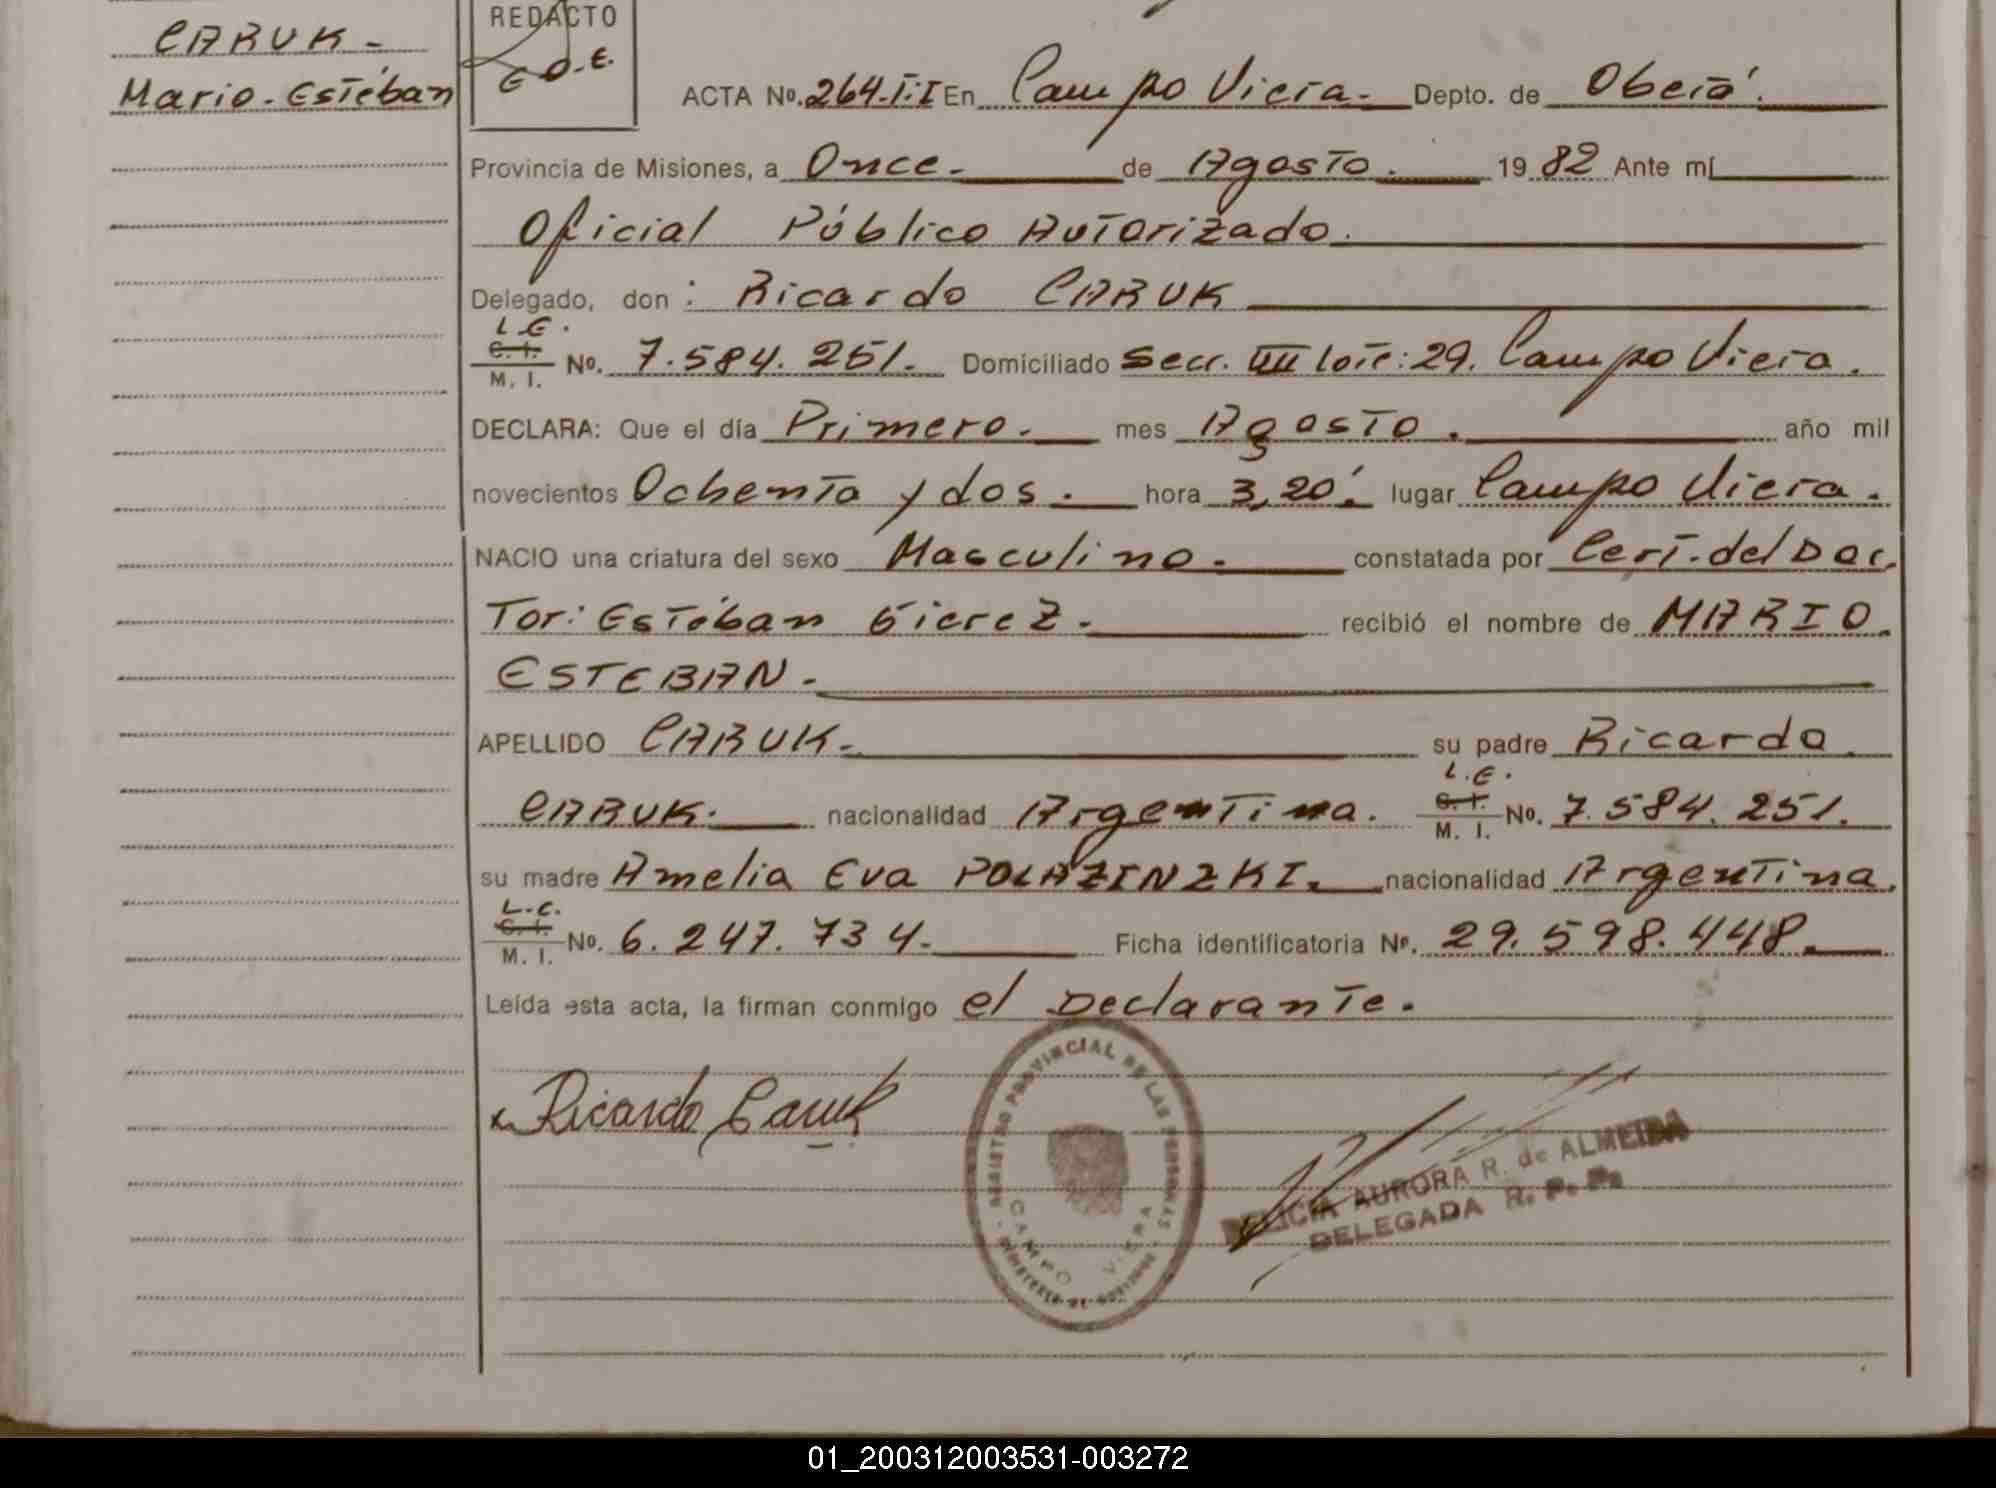 CARUK -
Mario - Estéban
REDACTO
ACTA Nº. 264-T:I En Campo Viera - Depto. de Oberá.
Provincia de Misiones, a Once - de Agosto . 19 82 Ante mí
Oficial Público Autorizado.
Delegado, don : Ricardo CARUK
L.E.
C. I.
M. I. Nº. 7.584.251. Domiciliado Secc. VIII lote: 29. Campo Viera.
DECLARA: Que el día Primero. mes Agosto . año mil
novecientos Ochenta y dos . hora 3,20'. lugar Campo Viera.
NACIO una criatura del sexo Masculino . constatada por Cert. del Doc.
Tor: Estéban Gierez . recibió el nombre de MARIO.
ESTEBAN .
APELLIDO CARUK - su padre Ricardo
CARUK. nacionalidad Argentina. L.E.
C. I.
M. I. Nº. 7.584.251.
su madre Amelia Eva POLAZINZKI. nacionalidad Argentina.
L.C.
C. I.
M. I. Nº. 6.247.734. Ficha identificatoria Nº. 29.598.448.
Leída esta acta, la firman conmigo el Declarante.
x Ricardo Caruk
REGISTRO PROVINCIAL DE LAS PERSONAS
CAMPO VIERA
MINISTERIO DE GOBIERNO
FELICIA AURORA R. de ALMEIDA
DELEGADA R. P. P.
01_200312003531-003272